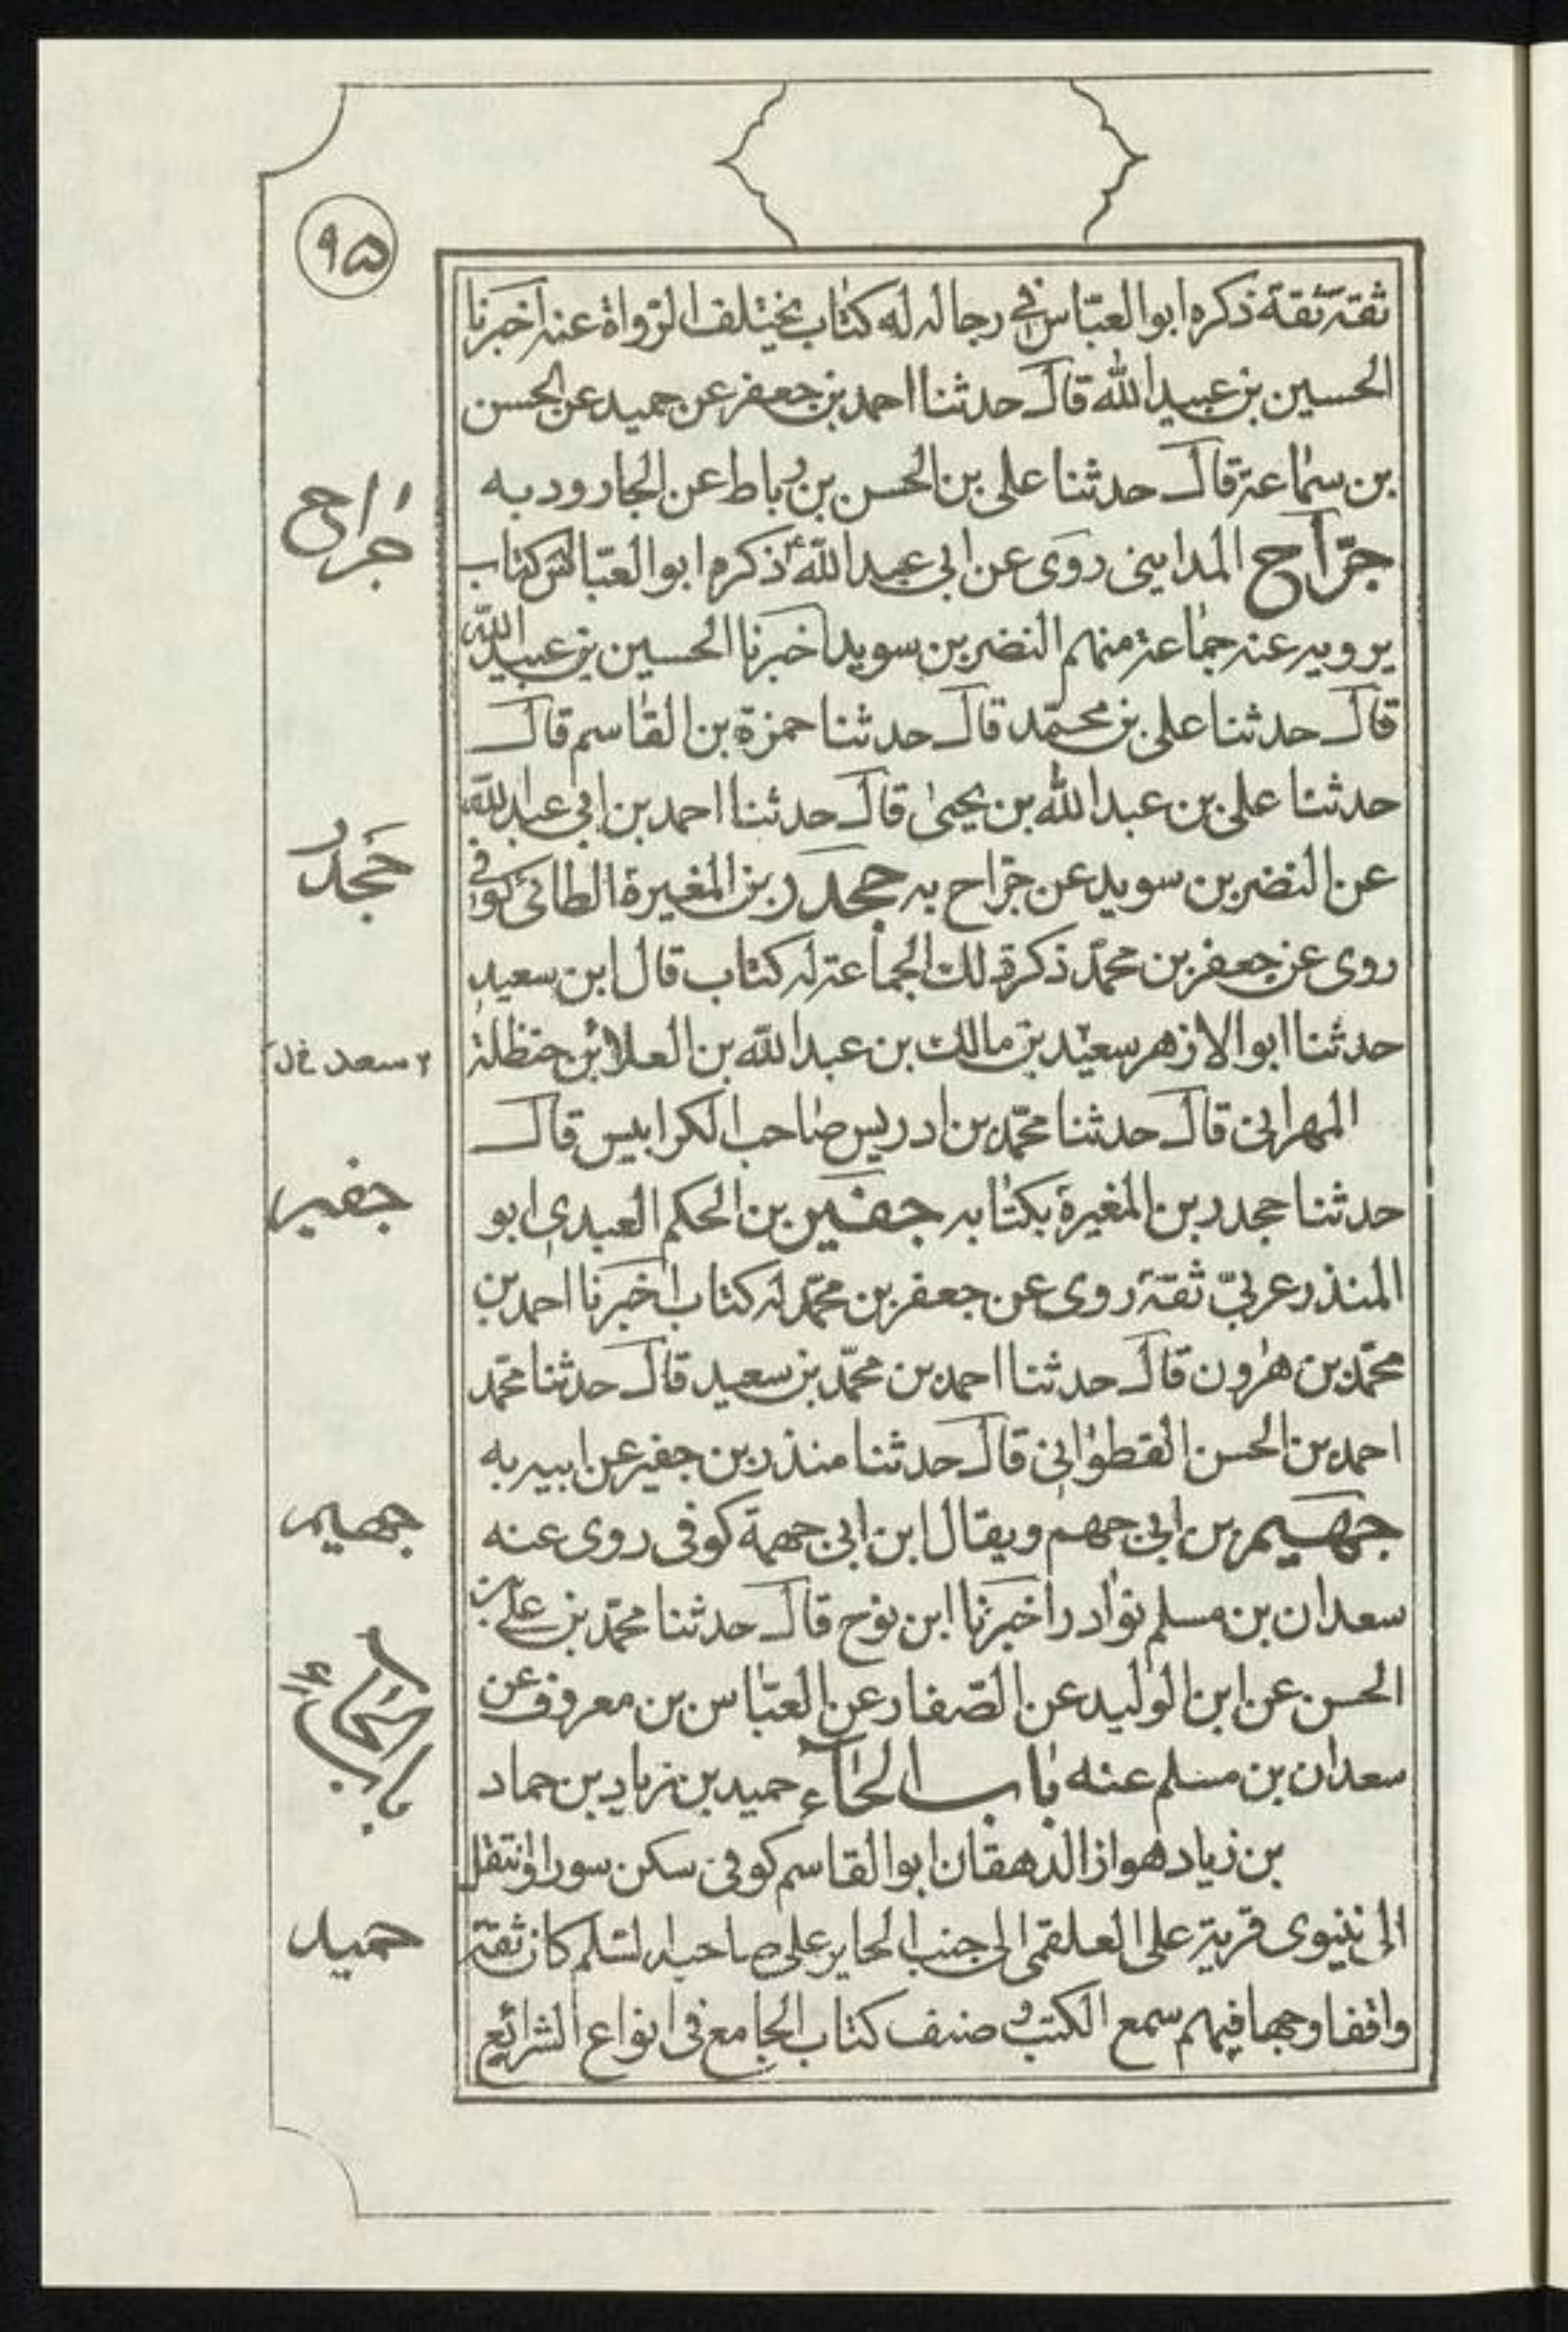 ٩٥
ثقة ثقة ذكره ابو العبّاس في رجاله له كتاب يختلف الرّواة عنه اخبرنا
الحسين بن عبيد الله قال حدثنا احمد بن جعفر عن حميد عن الحسن
بن سماعة قال حدثنا على بن الحسن بن رباط عن الجارود به
جرّاح المدايني روى عن ابي عبد الله ع ذكره ابو العبّاس له كتاب
يرويه عنه جماعة منهم النضر بن سويد اخبرنا الحسين بن عبيد الله
قال حدثنا على بن محمّد قال حدثنا حمزة بن القاسم قال
حدثنا على بن عبد الله بن يحيى قال حدثنا احمد بن ابي عبد الله
عن النضر بن سويد عن جرّاح به جحدر بن المغيرة الطائى كوفى
روى عن جعفر بن محمّد ذكر ذلك الجماعة له كتاب قال ابن سعيد
حدثنا ابو الازهر سعيد بن مالك بن عبد الله بن العلا بن حنظلة
المهرانى قال حدثنا محمّد بن ادريس صاحب الكرابيس قال
حدثنا جحدر بن المغيرة بكتابه جفير بن الحكم العبدى ابو
المنذر عربىّ ثقة روى عن جعفر بن محمّد له كتاب اخبرنا احمد بن
محمّد بن هرون قال حدثنا احمد بن محمّد بن سعيد قال حدثنا محمّد
احمد بن الحسن القطوانى قال حدثنا منذر بن جفير عن ابيه به
جهيم بن ابى جهم ويقال ابن ابى جهمة كوفى روى عنه
سعدان بن مسلم نوادر اخبرنا ابن نوح قال حدثنا محمّد بن على بن
الحسن عن ابن الوليد عن الصّفار عن العبّاس بن معروف عن
سعدان بن مسلم عنه باب الحاء حميد بن زياد بن حماد
بن زياد هواز الدهقان ابو القاسم كوفى سكن سورا وانتقل
الى نينوى قرية على العلقمى الى جنب الحاير على صاحبه السّلم كان ثقة
واقفا وجها فيهم سمع الكتب و صنف كتاب الجامع فى انواع الشرائع
جراح
جحدر
٢ سعد خ ل
جفير
جهيم
باب الحاء
حميد